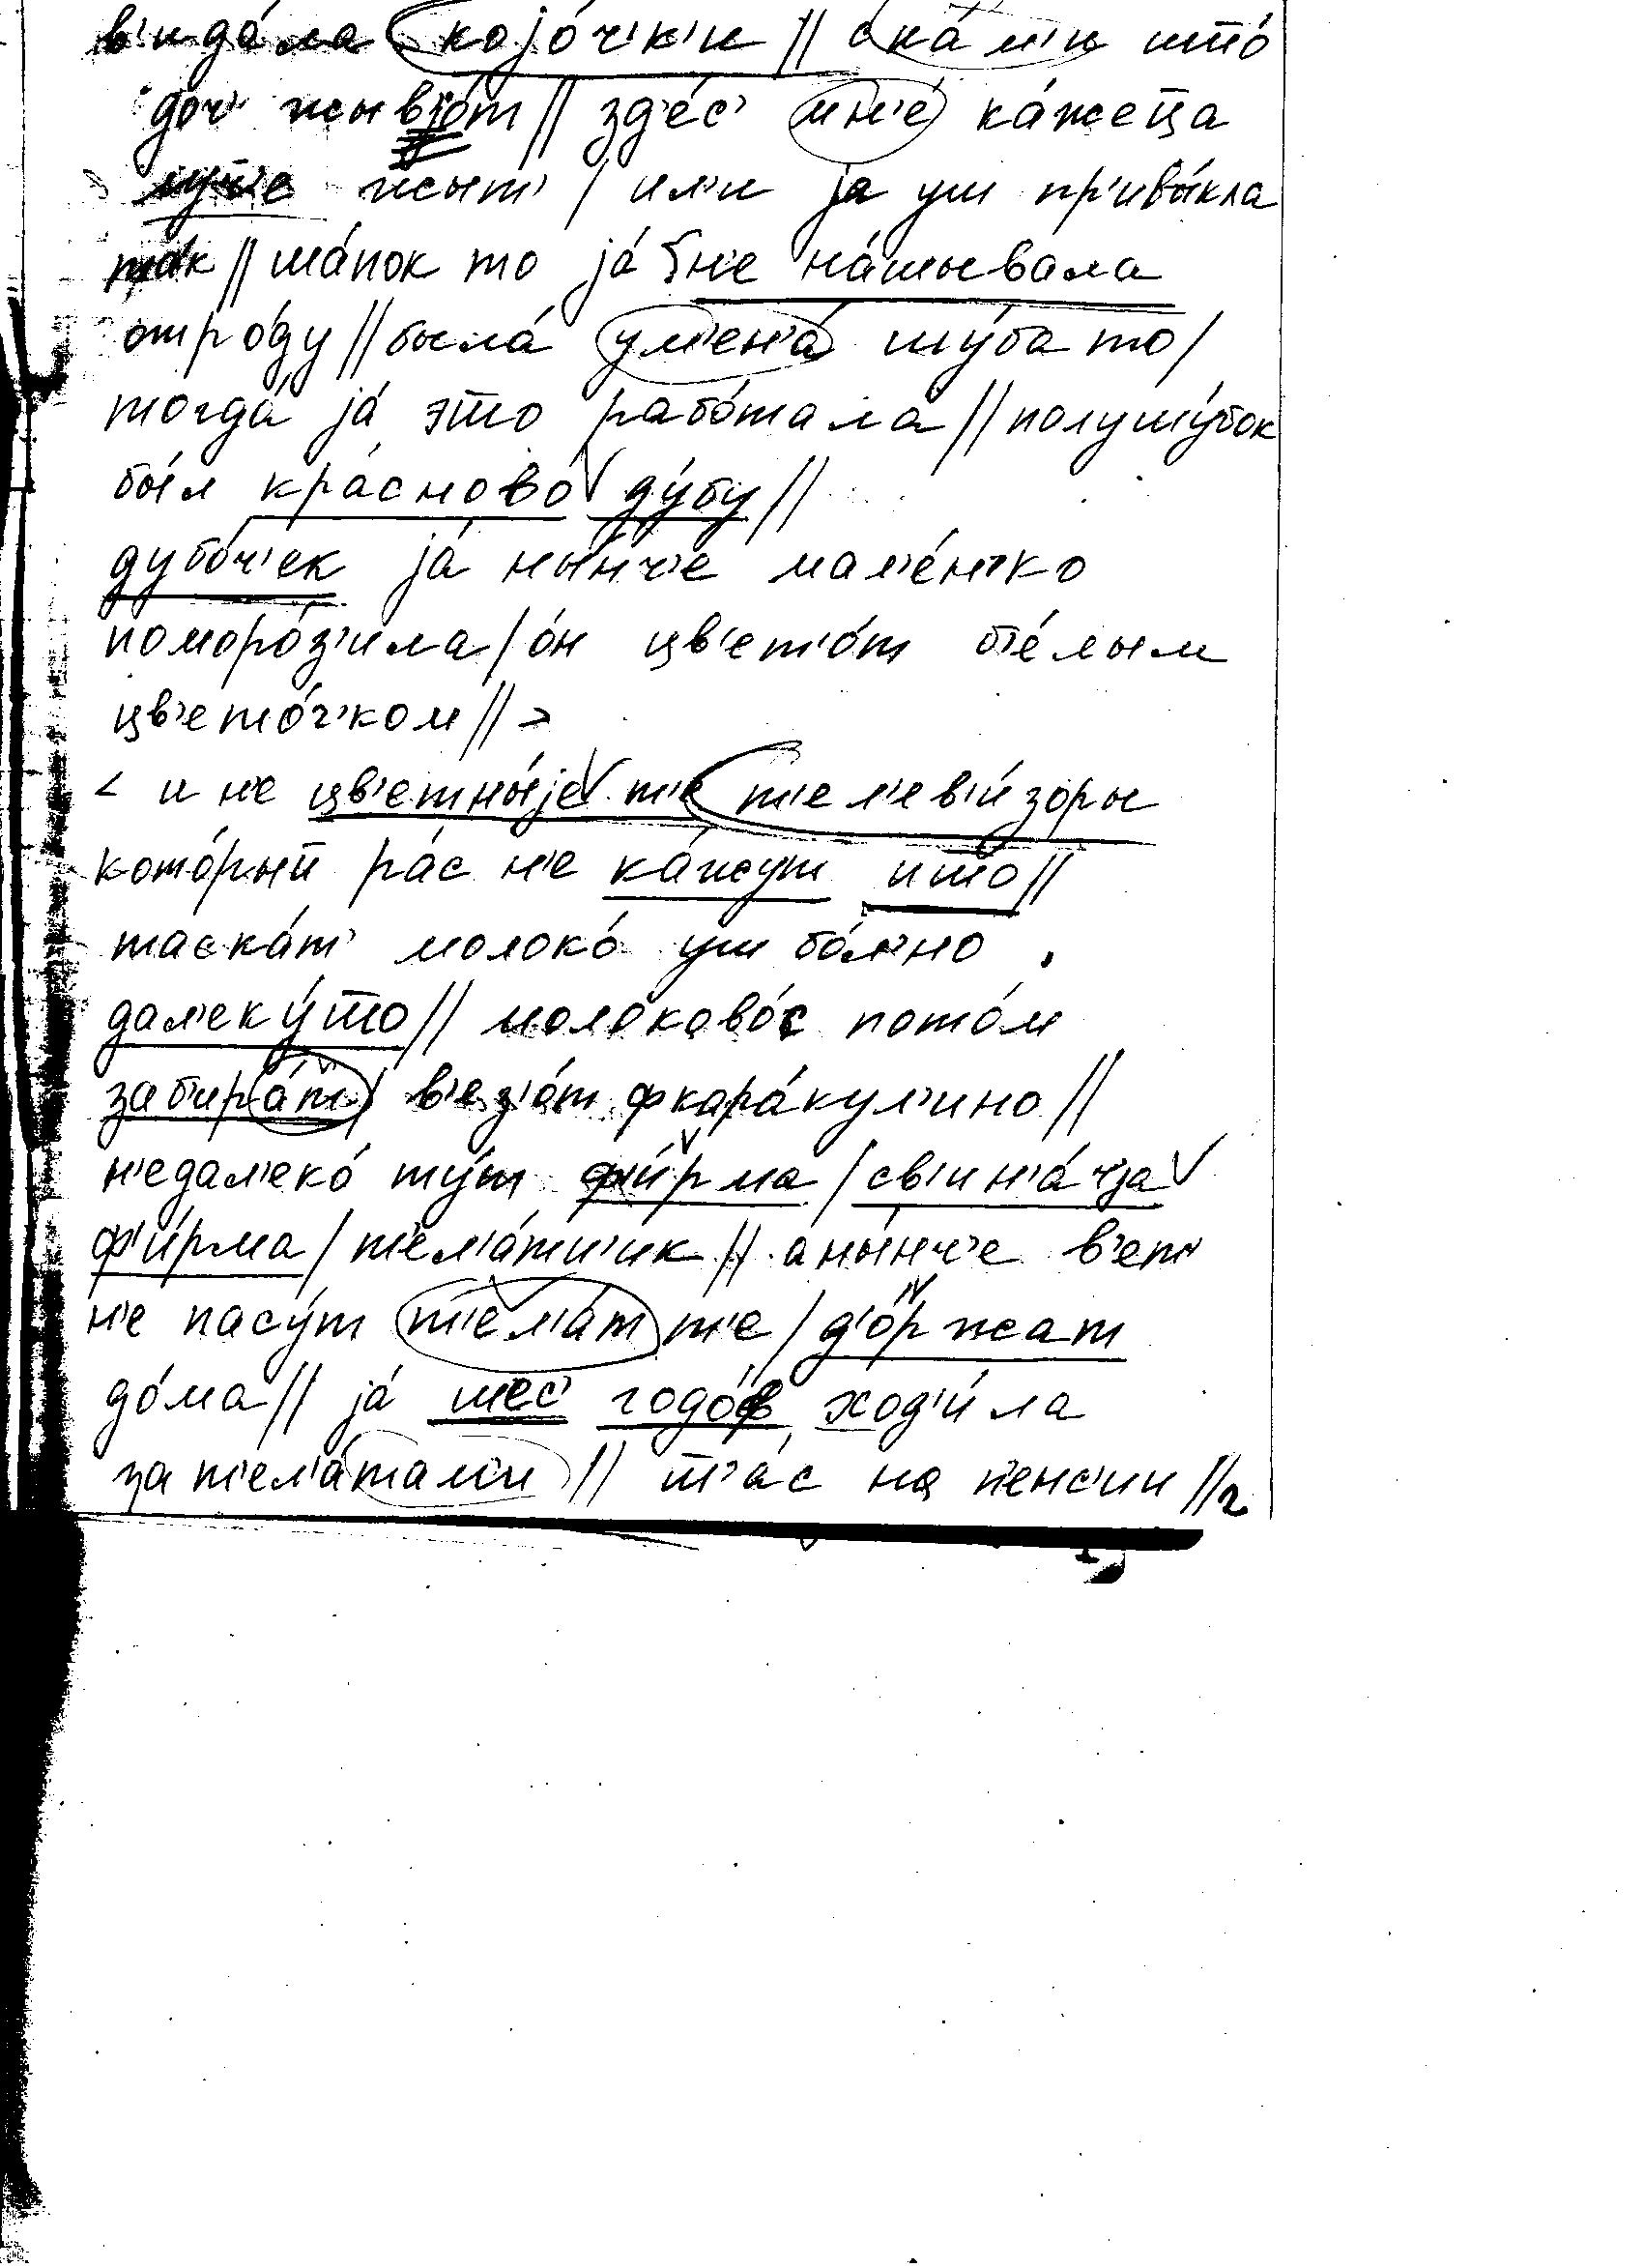 в'ида́ла коjо́ч'к'и // ска́м'и што́
доч' жыв'о́т // зд'е́с' мн'е́ ка́жеца
луч'е жыт' / ил'и jа уш пр'ивы́кла
та́к // ша́пок то jа́ н'е на́шывала
отро́ду // была́ ум'ен'а́ шу́ба то /
тогда́ jа́ это рабо́тала // полушу́бок
бы́л кра́сново́ ду́бу //
дубо́ч'ек jа́ ны́нч'е мал'е́н'ко
поморо́з'ила / о́н цв'ет'о́т б'е́лым
цв'ето́ч'ком // >
< и н'е цв'етны́jе т'е т'ел'ев'и́зоры
кото́рый ра́с н'е ка́жут што //
таска́т' молоко́ уш бо́л'но
дал'еку́то // молоково́с пото́м
заб'ира́т / в'ез'о́т фкара́кул'ино //
н'едал'еко́ ту́т ф'и́рма / св'ин'а́ч'jа
ф'и́рма / т'ел'а́тн'ик // аны́нч'е в'ет'
н'е пасу́т т'ел'а́т т'е / д'о́ржат
до́ма // jа́ шес' годо́в ход'и́ла
за т'ел'а́там'и // т'а́с на п'енс'ии // 2